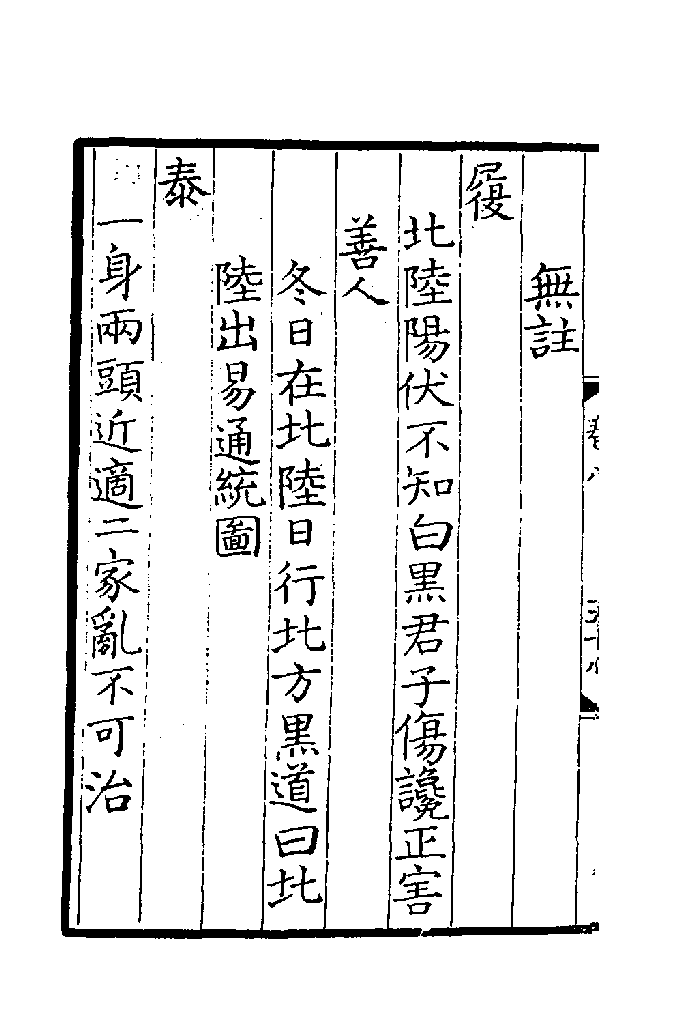 無註
履
北陸陽伏不知白黒君子傷讒正害
善人
冬日在北陸日行北方黒道曰北
陸出易通統圖
泰
一身兩頭近適二家亂不可治